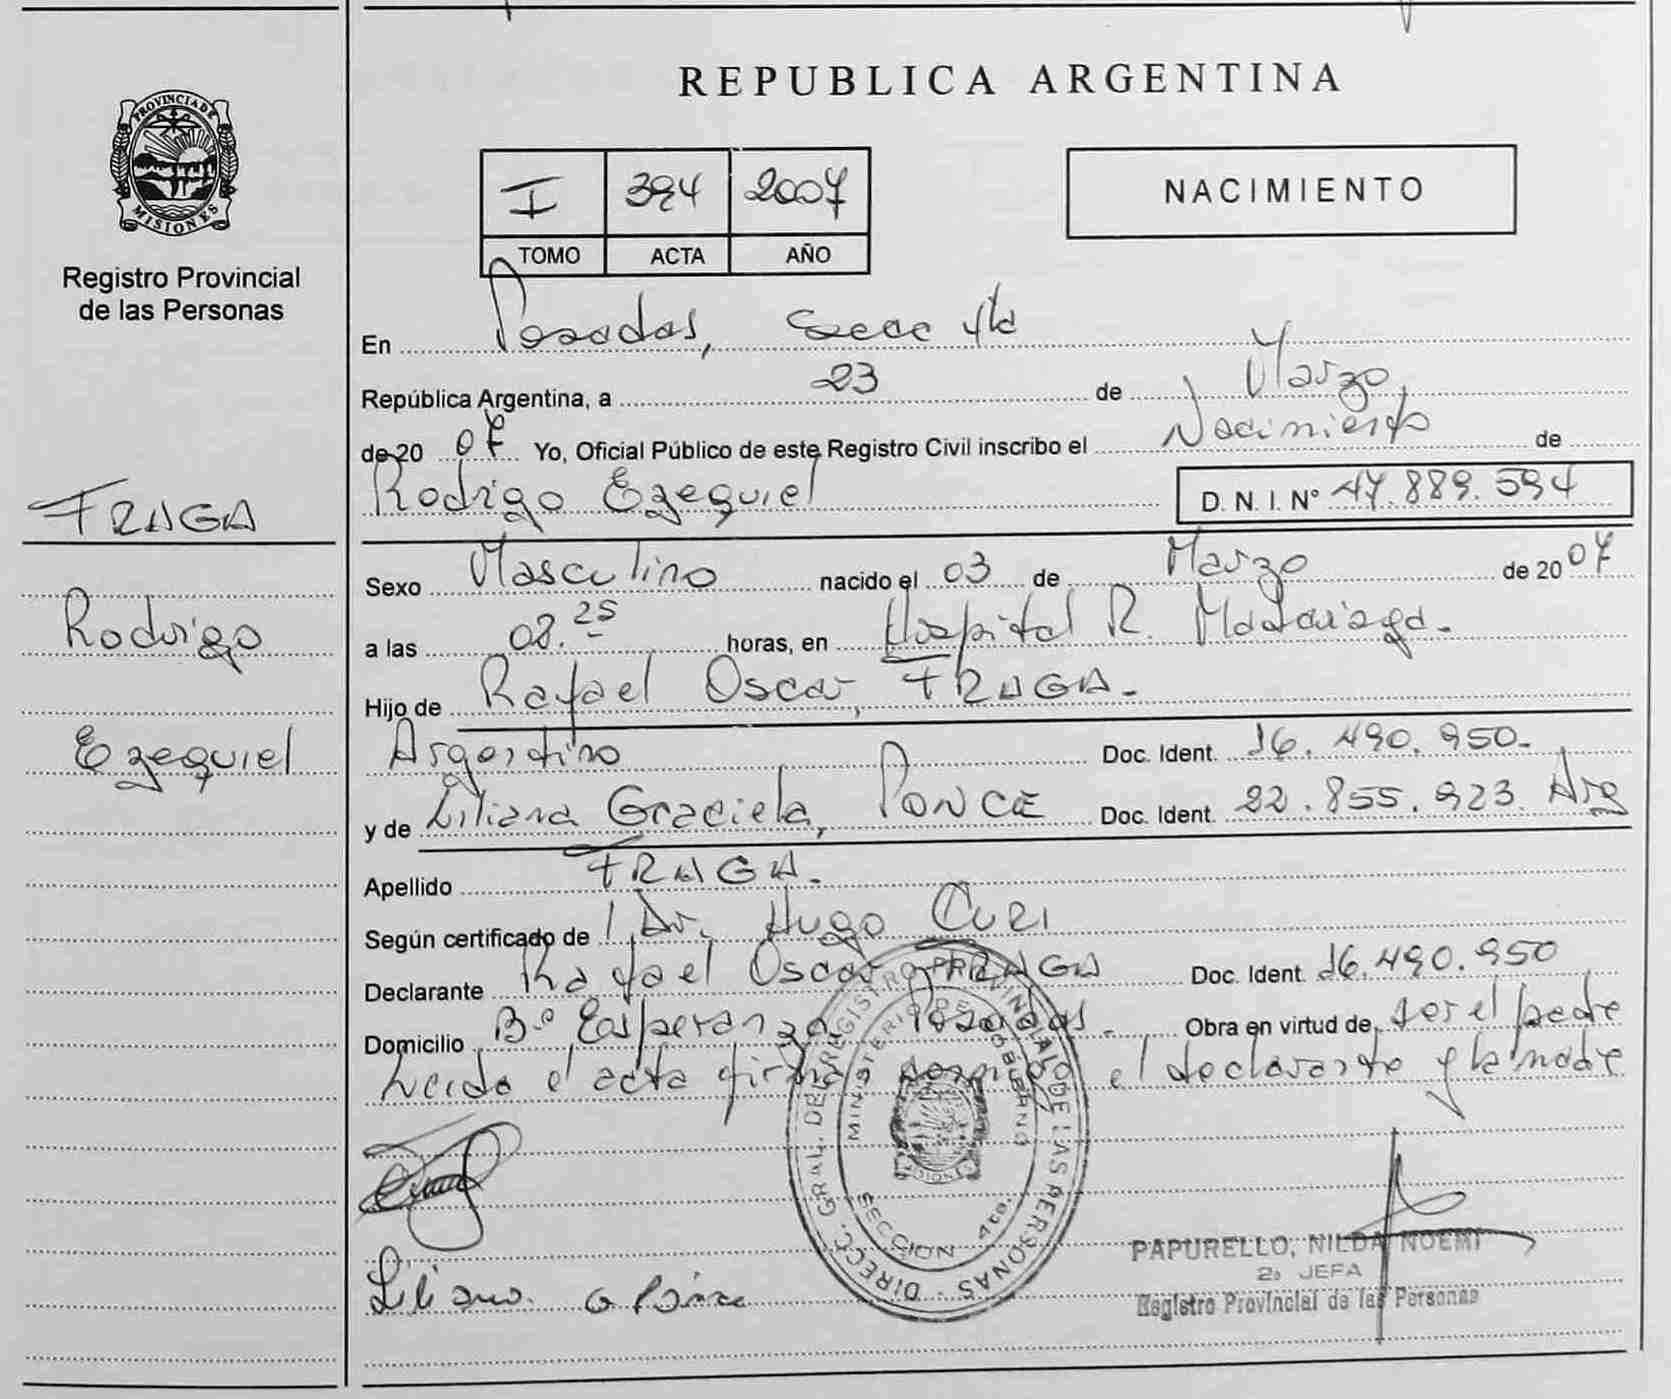 PROVINCIA DE
MISIONES
Registro Provincial
de las Personas
FRAGA
Rodrigo
Ezequiel
REPUBLICA ARGENTINA
I 394 2007
TOMO ACTA AÑO
NACIMIENTO
En Posadas, Secc 4ta
República Argentina, a 23 de Marzo
de 20 07 Yo, Oficial Público de este Registro Civil inscribo el Nacimiento de
Rodrigo Ezequiel D. N. I. N° 47.889.594
Sexo Masculino nacido el 03 de Marzo de 20 07
a las 08.25 horas, en Hospital R. Madariaga.
Hijo de Rafael Oscar, FRAGA.
Argentino Doc. Ident. 16.490.950.
y de Liliana Graciela, PONCE Doc. Ident. 22.855.923. Arg
Apellido FRAGA.
Según certificado de Dr. Hugo CURI
Declarante Rafael Oscar FRAGA Doc. Ident. 16.490.950
Domicilio Bº Esperanza. Posadas. Obra en virtud de ser el padre
Leida el acta firma el declarante y la madre
DIRECC. GRAL. DEL REGISTRO PROVINCIAL DE LAS PERSONAS
MINISTERIO DE GOBIERNO
SECCION 4ta.
Liliana G Ponce
PAPURELLO, NILDA NOEMI
2a JEFA
Registro Provincial de las Personas